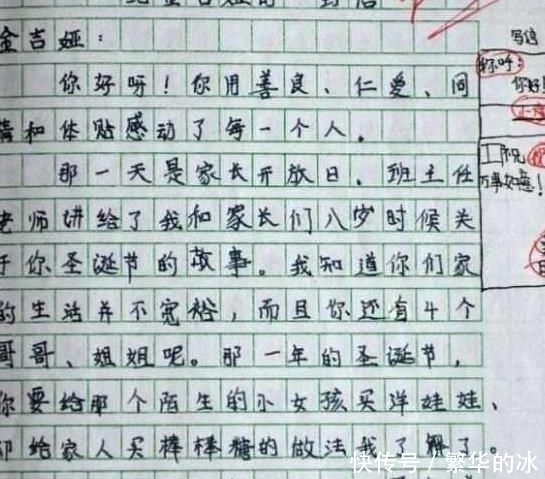 给金吉娅的一封信
金吉娅：
你好呀！你用善良、仁爱、同
情和体贴感动了每一个人。
那一天是家长开放日，班主任
老师讲给了我和家长们八岁时候关
于你圣诞节的故事。我知道你们家
的生活并不宽裕，而且你还有4个
哥哥、姐姐呢。那一年的圣诞节，
你要给那个陌生的小女孩买洋娃娃、
却给家人买棒棒糖的做法我了解了。
写信
称呼：
你好！
正文
工作
祝
万事如意！
快传号／繁华的冰